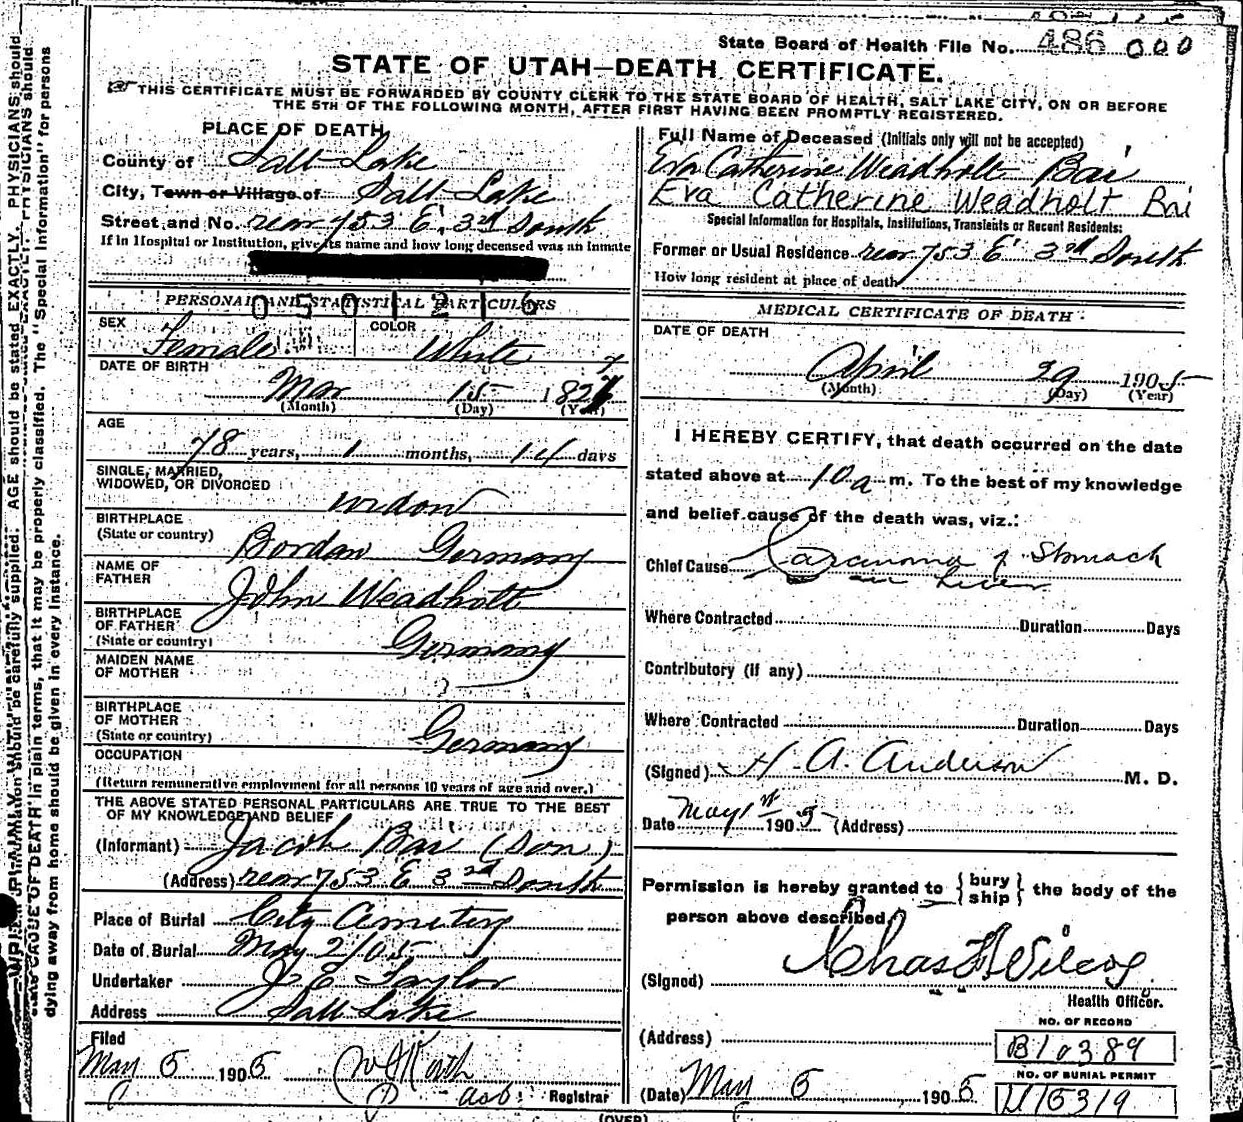 State Board of Health File No. 486 000
STATE OF UTAH—DEATH CERTIFICATE.
THIS CERTIFICATE MUST BE FORWARDED BY COUNTY CLERK TO THE STATE BOARD OF HEALTH, SALT LAKE CITY, ON OR BEFORE
THE 5TH OF THE FOLLOWING MONTH, AFTER FIRST HAVING BEEN PROMPTLY REGISTERED.
PLACE OF DEATH
County of Salt Lake
City, Town or Village of Salt Lake
Street and No. rear 753 E. 3rd South
If in Hospital or Institution, give its name and how long deceased was an inmate
Full Name of Deceased (Initials only will not be accepted)
Eva Catherine Weadholt Bai
Eva Catherine Weadholt Bai
Special Information for Hospitals, Institutions, Transients or Recent Residents:
Former or Usual Residence rear 753 E 3rd South
How long resident at place of death
PERSONAL AND STATISTICAL PARTICULARS
0501216
SEX Female
COLOR White
DATE OF BIRTH
Mar 15 1827
(Month) (Day) (Year)
AGE
78 years, 1 months, 14 days
SINGLE, MARRIED,
WIDOWED, OR DIVORCED
widow
BIRTHPLACE
(State or country) Bordan Germany
NAME OF
FATHER John Weadholt
BIRTHPLACE
OF FATHER
(State or country) Germany
MAIDEN NAME
OF MOTHER ?
BIRTHPLACE
OF MOTHER
(State or country) Germany
OCCUPATION
(Return remunerative employment for all persons 10 years of age and over.)
THE ABOVE STATED PERSONAL PARTICULARS ARE TRUE TO THE BEST
OF MY KNOWLEDGE AND BELIEF
(Informant) Jacob Bai (Son)
(Address) rear 753 E 3rd South
Place of Burial City Cemetery
Date of Burial May 2/05
Undertaker J E Taylor
Address Salt Lake
Filed
May 5 1905
Registrar
MEDICAL CERTIFICATE OF DEATH
DATE OF DEATH
April 29 1905
(Month) (Day) (Year)
I HEREBY CERTIFY, that death occurred on the date
stated above at 10 a m. To the best of my knowledge
and belief cause of the death was, viz.:
Chief Cause Carcinoma of Stomach
Liver
Where Contracted Duration Days
Contributory (if any)
Where Contracted Duration Days
(Signed) H A. Anderson M. D.
Date May 1st 1905 (Address)
Permission is hereby granted to { bury
ship } the body of the
person above described.
(Signed) Chas F Wilcox
Health Officer.
(Address)
NO. OF RECORD
B10389
NO. OF BURIAL PERMIT
(Date) May 5 1905
(OVER)
AGE should be stated EXACTLY. PHYSICIANS should
in plain terms, that it may be properly classified. The "Special Information" for persons
dying away from home should be given in every instance.